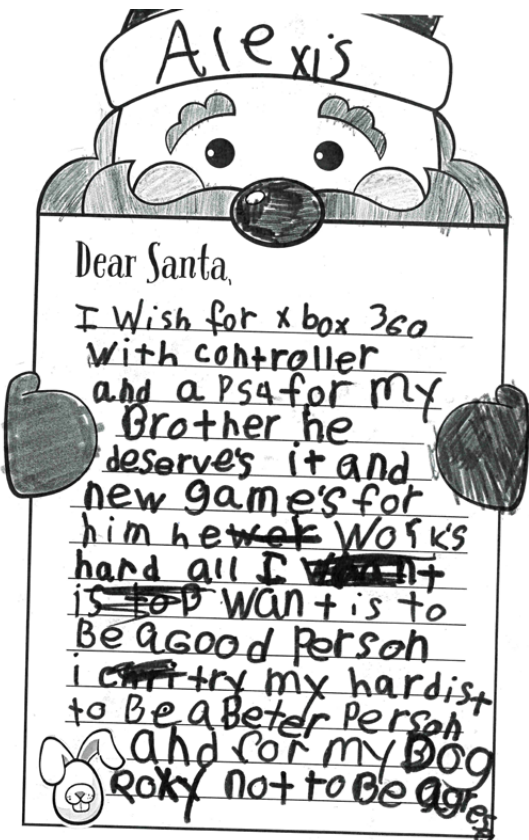 Alexis
Dear Santa,
I Wish for x box 360
with controller
and a PS4 for my
Brother he
deserve's it and
new game's for
him he Work's
hard all I
want is to
Be a Good Person
i try my hardist
to Be a Beter Person
and for my Dog
Roxy not to Be agres